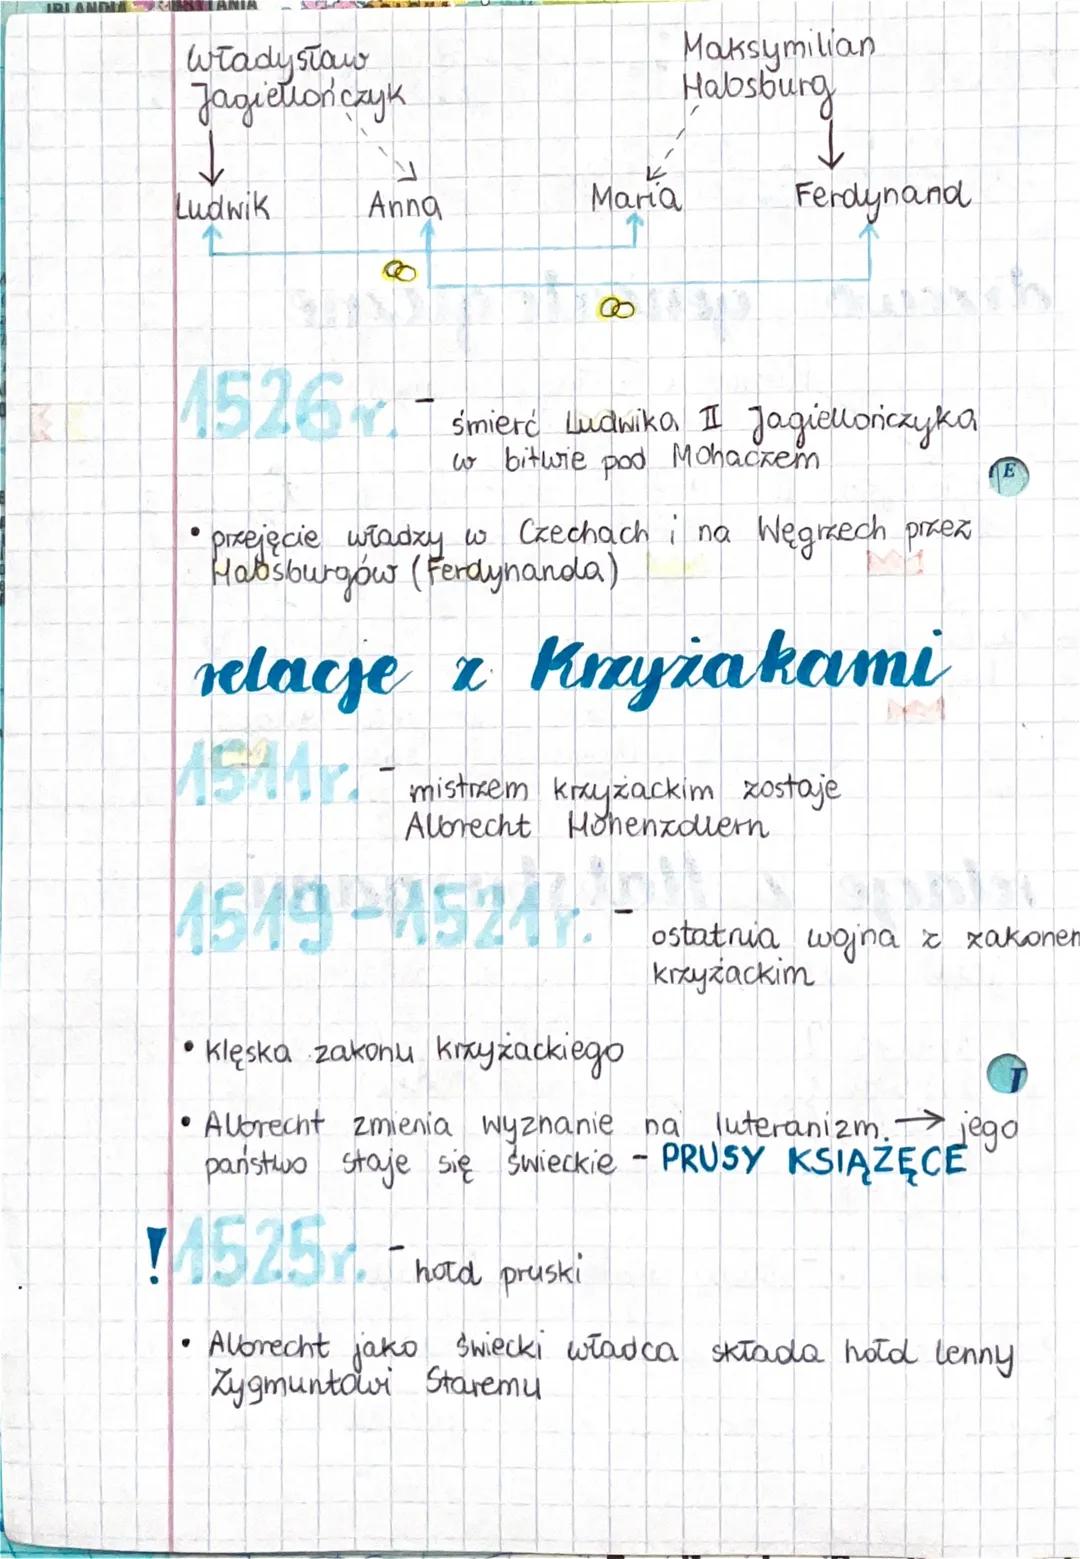 IRLANDIA
Władysław
Jagiellończyk
Maksymilian
Habsburg
Ludwik Anna Maria Ferdynand
1526 r. - śmierć Ludwika II Jagiellończyka
w bitwie pod Mohaczem
E
• przejęcie władzy w Czechach i na Węgrzech przez
Habsburgów (Ferdynanda)
relacje z Krzyżakami
1511 r. - mistrzem krzyżackim zostaje
Albrecht Hohenzollern
1519-1521 r. - ostatnia wojna z zakonem
krzyżackim
• Klęska zakonu krzyżackiego
I
• Albrecht zmienia wyznanie na luteranizm. → jego
państwo staje się świeckie - PRUSY KSIĄŻĘCE
! 1525 r. - hołd pruski
• Albrecht jako świecki władca składa hołd lenny
Zygmuntowi Staremu